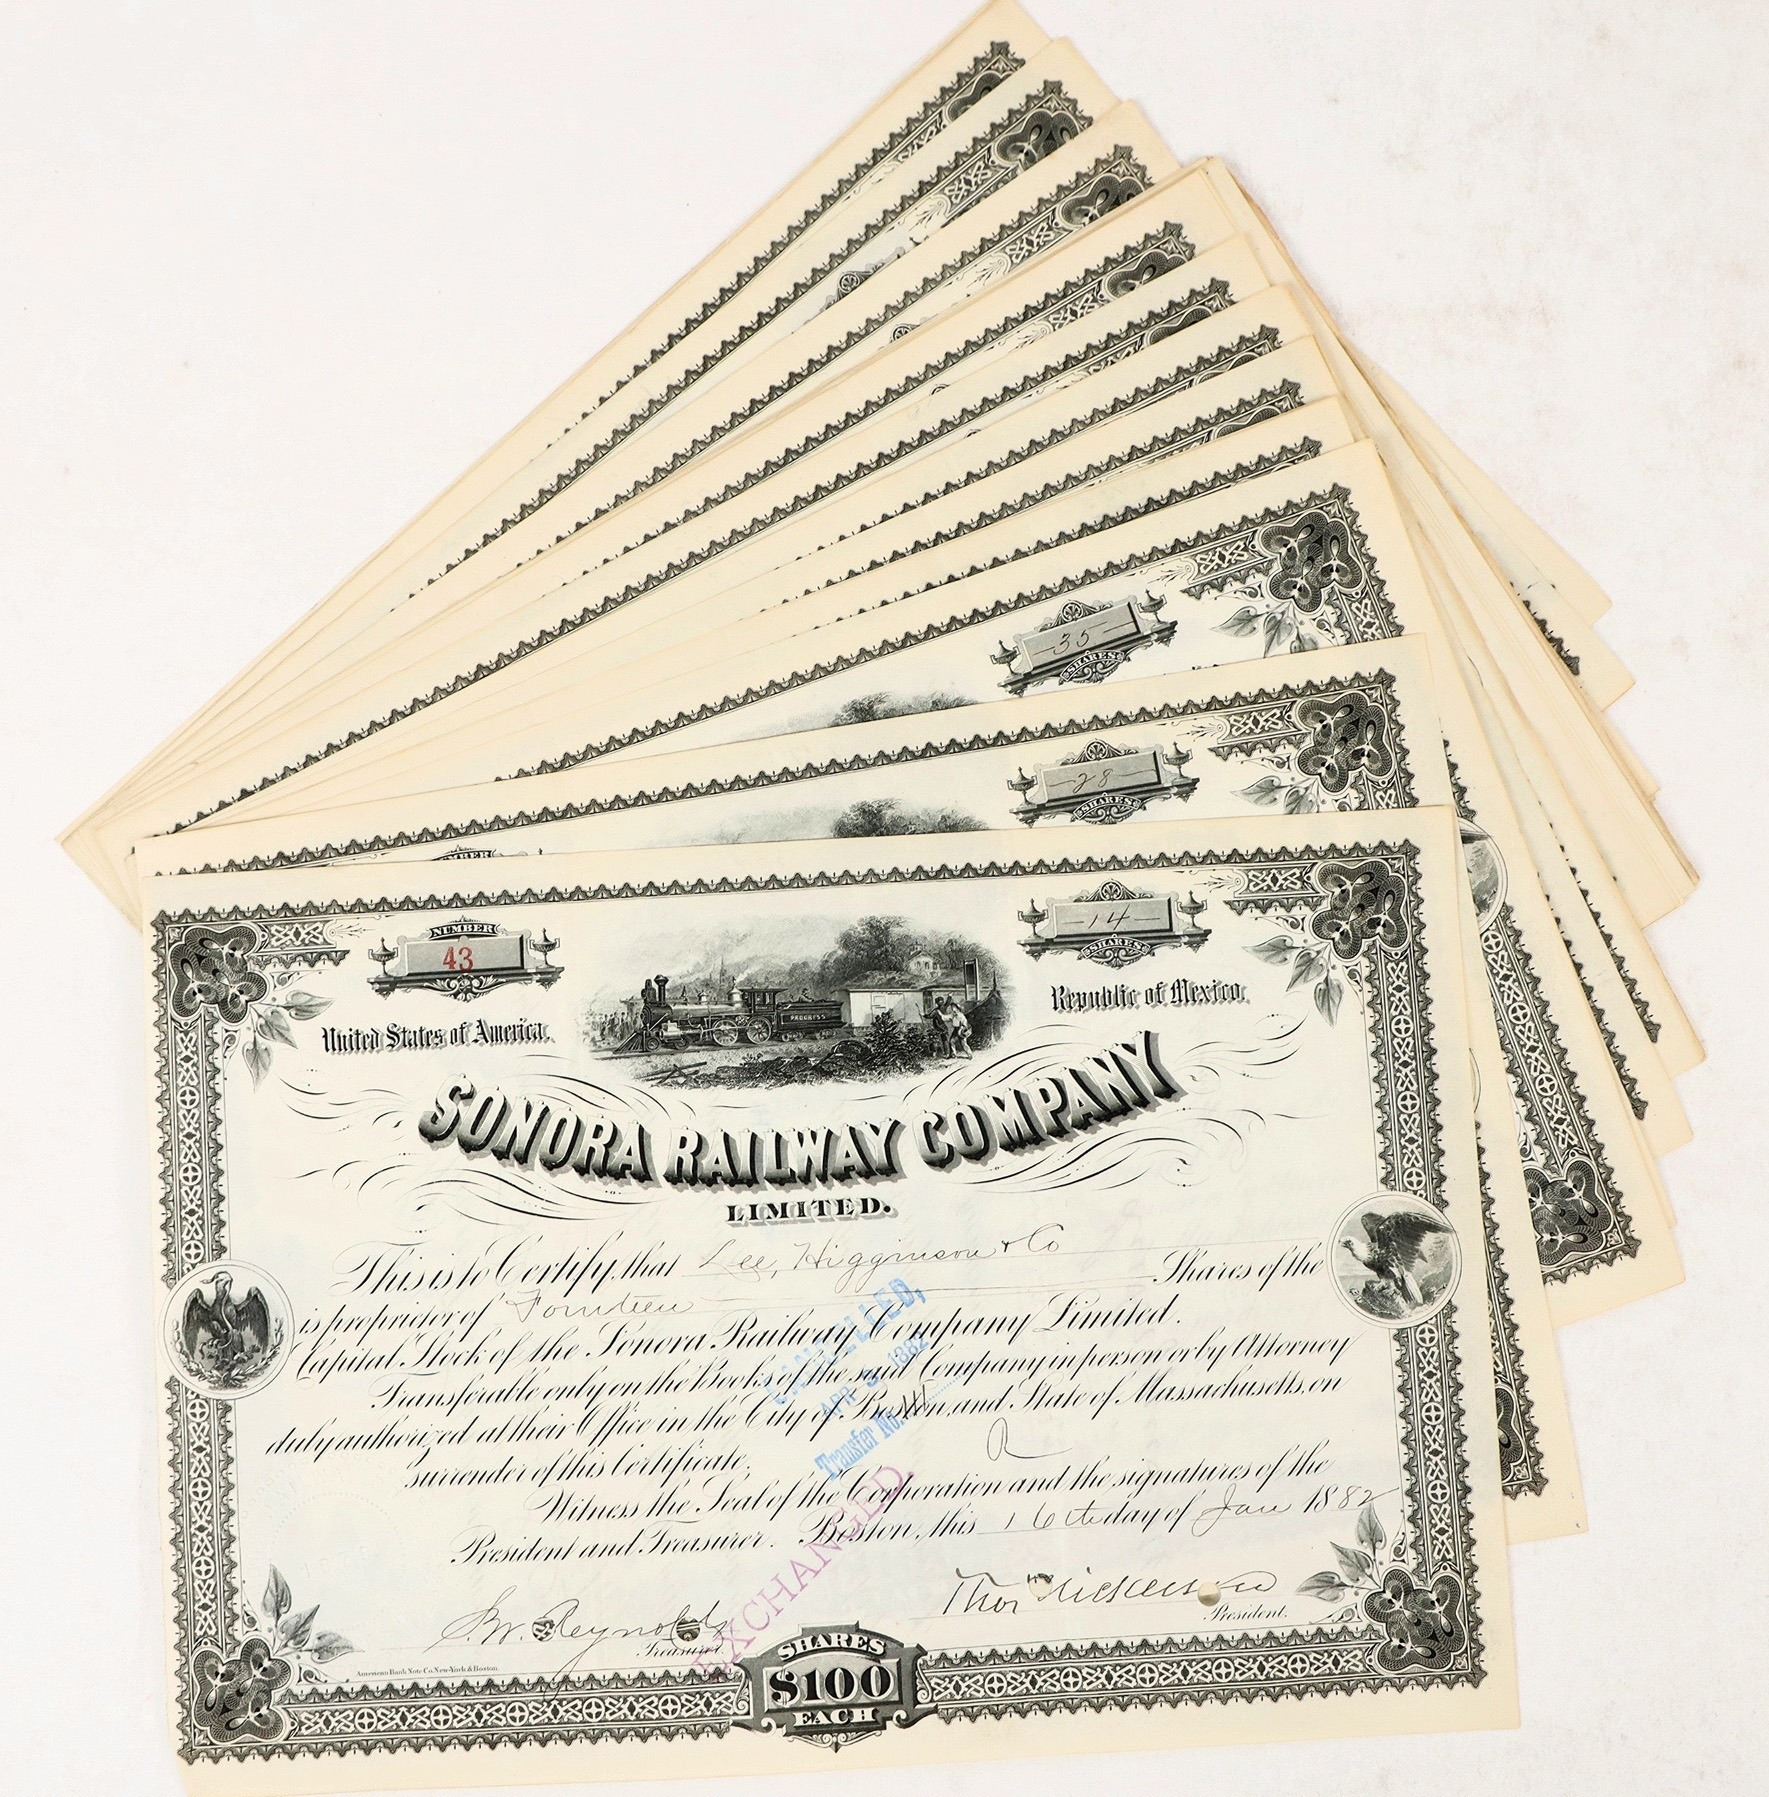 35
SHARES
28
SHARES
NUMBER
NUMBER
43
14
SHARES
United States of America.
PROGRESS
Republic of Mexico.
SONORA RAILWAY COMPANY
LIMITED.
This is to Certify, that Lee, Higginson & Co
is proprietor of Fourteen Shares of the
Capital Stock of the Sonora Railway Company Limited.
Transferable only on the Books of the said Company in person or by Attorney
duly authorized at their Office in the City of Boston, and State of Massachusetts, on
surrender of this Certificate.
Witness the Seal of the Corporation and the signatures of the
President and Treasurer. Boston, this 16th day of Jan 1882
CANCELLED,
APR 1882
Transfer No.
EXCHANGED
S. W. Reynolds
Treasurer.
Thos Nickerson
President.
American Bank Note Co. New-York & Boston.
SHARES
$100
EACH